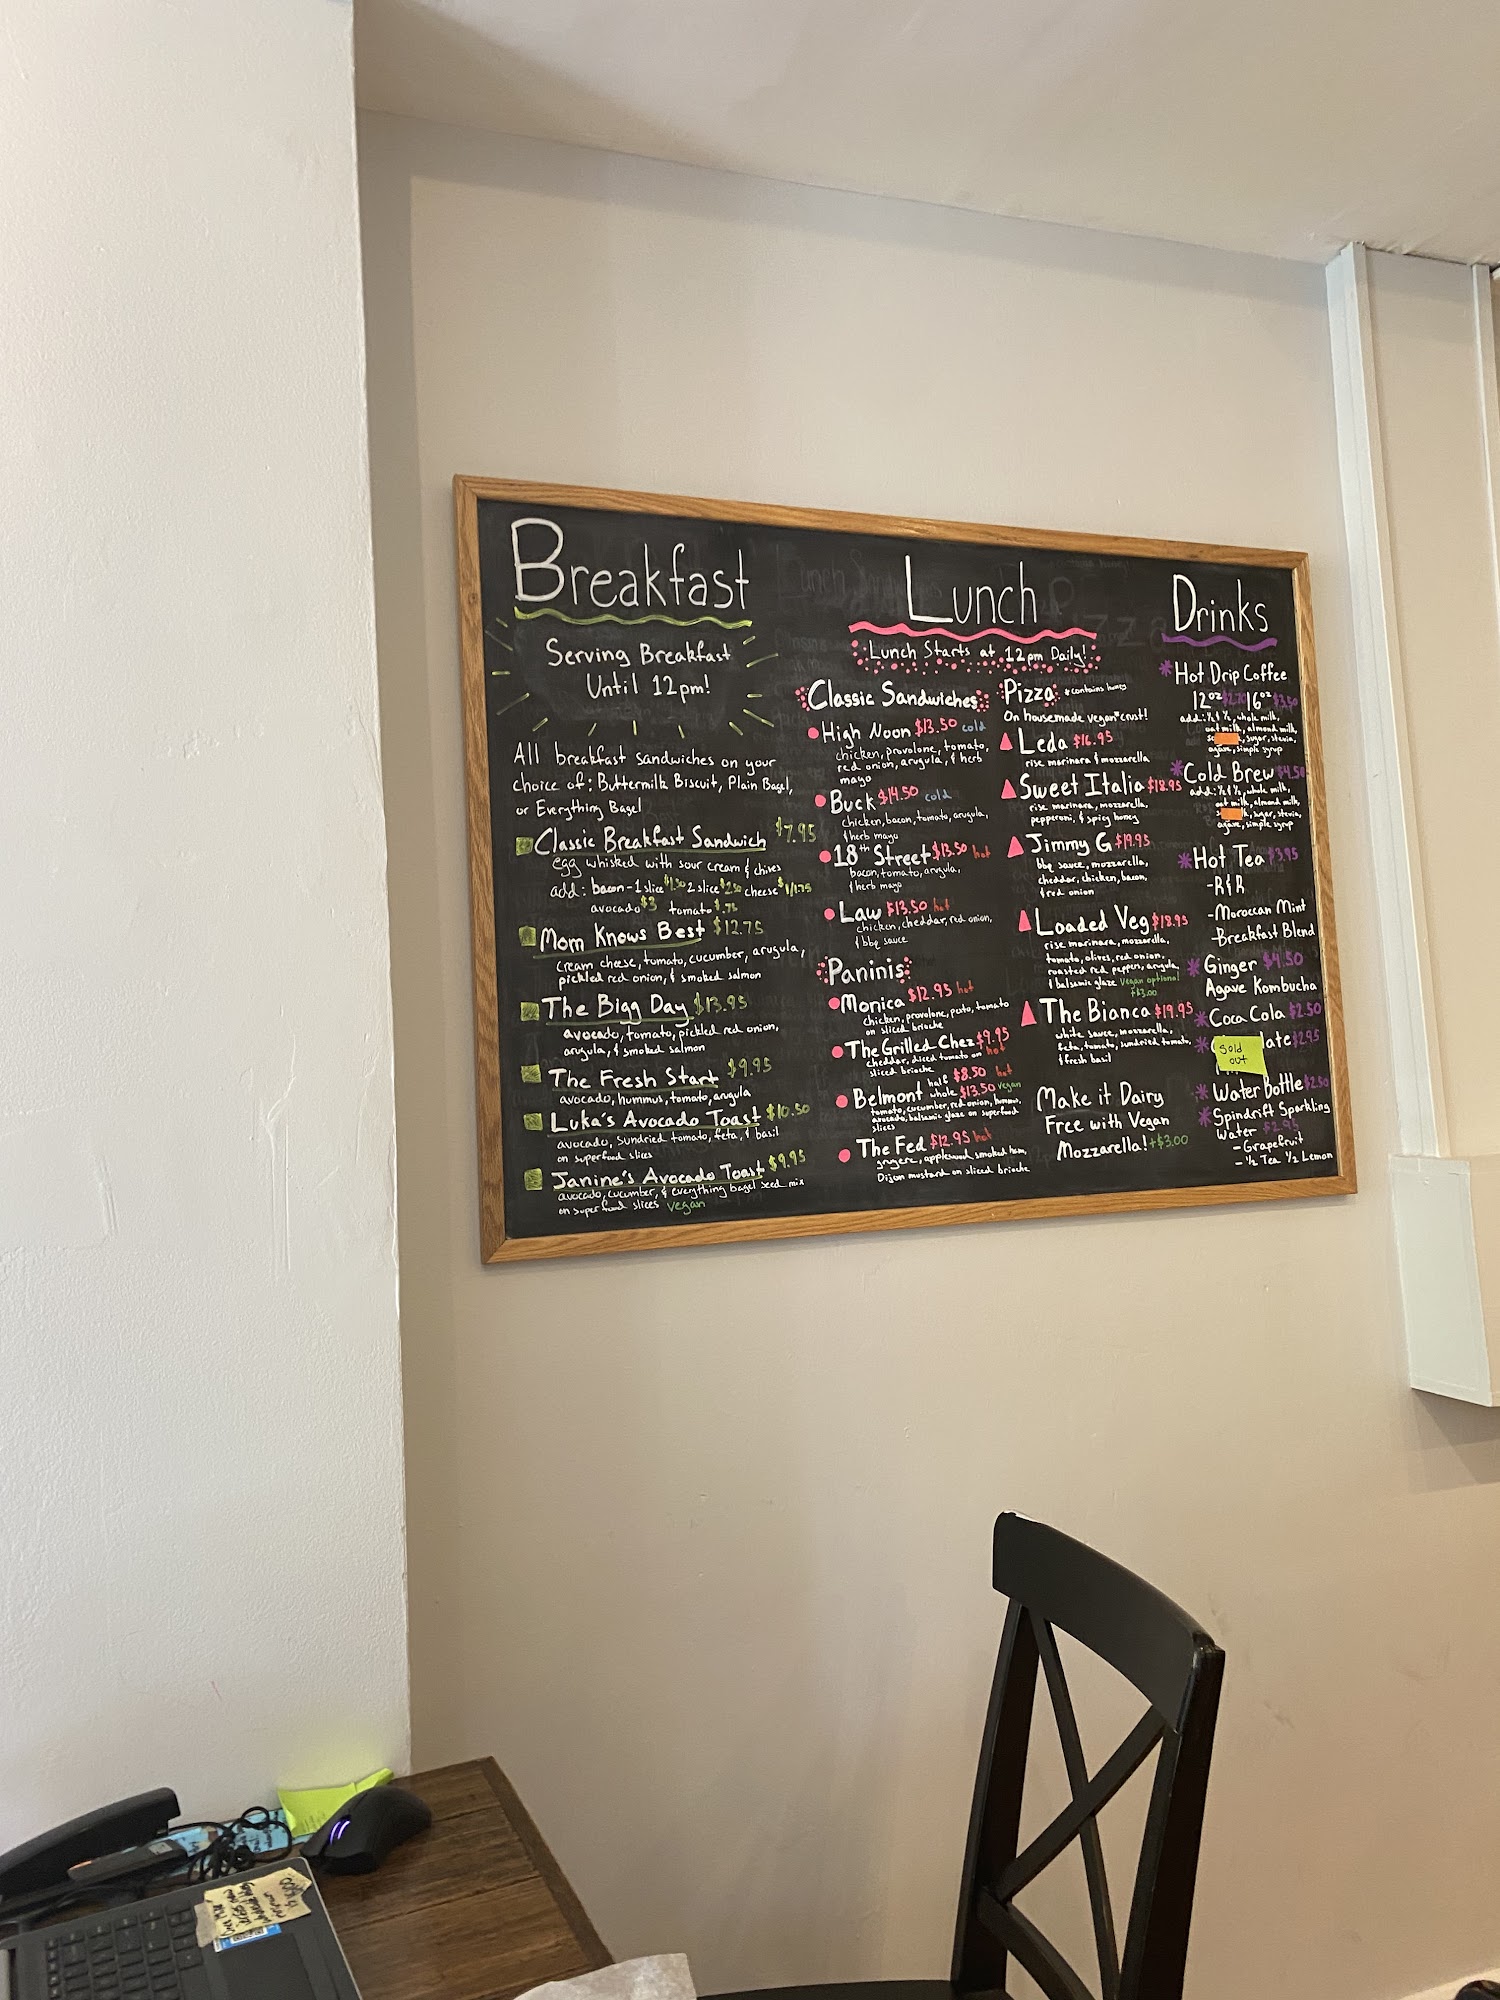 Breakfast
Serving Breakfast
Until 12pm!
All breakfast sandwiches on your
choice of: Buttermilk Biscuit, Plain Bagel,
or Everything Bagel
Classic Breakfast Sandwich $7.95
egg whisked with sour cream & chives
add: bacon-1 slice $1.50 2 slice $2.50 cheese $1/1.75
avocado $3 tomato $.75
Mom Knows Best $12.75
cream cheese, tomato, cucumber, arugula,
pickled red onion, & smoked salmon
The Bigg Day $13.95
avocado, tomato, pickled red onion,
arugula, & smoked salmon
The Fresh Start $9.95
avocado, hummus, tomato, arugula
Luka's Avocado Toast $10.50
avocado, sundried tomato, feta, & basil
on superfood slices
Janine's Avocado Toast $9.95
avocado, cucumber, & everything bagel seed mix
on superfood slices vegan
Lunch
Lunch Starts at 12pm Daily!
Classic Sandwiches
High Noon $13.50 cold
chicken, provolone, tomato,
red onion, arugula, & herb
mayo
Buck $14.50 cold
chicken, bacon, tomato, arugula,
& herb mayo
18th Street $13.50 hot
bacon, tomato, arugula,
& herb mayo
Law $13.50 hot
chicken, cheddar, red onion,
& bbq sauce
Paninis
Monica $12.95 hot
chicken, provolone, pesto, tomato
on sliced brioche
The Grilled Chez $9.95
cheddar, diced tomato on hot
sliced brioche
half $8.50 hot
Belmont whole $13.50 vegan
tomato, cucumber, red onion, hummus,
avocado, balsamic glaze on superfood
slices
The Fed $12.95 hot
gruyere, applewood smoked ham,
Dijon mustard on sliced brioche
Pizza *contains honey
On housemade vegan* crust!
Leda $16.95
rise marinara & mozzarella
Sweet Italia $18.95
rise marinara, mozzarella,
pepperoni, & spicy honey
Jimmy G $19.95
bbq sauce, mozzarella,
cheddar, chicken, bacon,
& red onion
Loaded Veg $18.95
rise marinara, mozzarella,
tomato, olives, red onion,
roasted red peppers, arugula,
& balsamic glaze Vegan optional
+$3.00
The Bianca $19.95
white sauce, mozzarella,
feta, tomato, sundried tomato,
& fresh basil
Make it Dairy
Free with Vegan
Mozzarella! +$3.00
Drinks
*Hot Drip Coffee
12oz $2.70 16oz $3.50
add: ½ & ½, whole milk,
oat milk, almond milk,
sugar, stevia,
agave, simple syrup
*Cold Brew $4.50
add: ½ & ½, whole milk,
oat milk, almond milk,
sugar, stevia,
agave, simple syrup
*Hot Tea $3.95
-R&R
-Moroccan Mint
-Breakfast Blend
*Ginger $4.50
Agave Kombucha
*Coca Cola $2.50
Sold
out
$2.95
*Water Bottle $2.50
*Spindrift Sparkling
Water $2.95
-Grapefruit
-½ Tea ½ Lemon